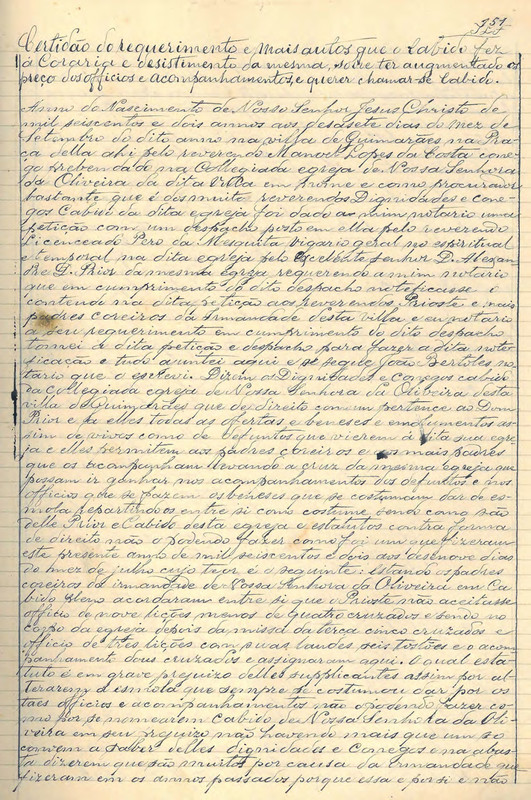 151
Certidão do requerimento e mais autos que o Cabido fez
á Coraria e desistimento da mesma, sobre ter augmentado os
preço dos officios e acompanhamentos, e querer chamar-se Cabido.
Anno do Nascimento de Nosso Senhor Jesus Christo de
mil seiscentos e dois annos aos desasete dias do mez de
Setembro do dito anno na villa de Guimarães na Pra-
ça della ahi pelo reverendo Manoel Lopes da Costa cone-
go prebendado na Collegiada egreja de Nossa Senhora
da Oliveira da dita Villa em nome e como procurador
bastante que é dos muito reverendos Dignidades e cone-
gos Cabido da dita egreja foi dado a mim notario uma
petição com um despacho posto em ella pelo reverendo
Licenceado Pero da Mesquita vigario geral no espiritual
e temporal na dita egreja pelo excellente Senhor D. Alexan-
dre D. Prior da mesma egreja requerendo a mim notario
que em cumprimento do dito despacho noteficasse o
contendo na dita petição aos reverendos Prioste e mais
padres coreiros da Irmandade desta villa e eu notario
a seu requerimento em cumprimento do dito despacho
tomei a dita petição e despacho para fazer a dita note-
ficação e tudo ajuntei aqui e se segue João Bertoles no-
tario que o escrevi. Dizem os Dignidades e Conegos cabido
da Collegiada egreja de Nossa Senhora da Oliveira desta
villa de Guimarães que de direito comum pertence ao Dom
Prior e a elles todas as ofertas e beneses e emolumentos as-
sim de vivos como de defuntos que vierem á dita sua egre-
ja e elles permitem aos padres coreiros e aos mais padres
que os acompanham levando a cruz da mesma egreja que
possam ir ganhar nos acompanhamentos dos defuntos e nos
officios que se fazem os beneses que se costumam dar de es-
mola repartindo os entre si como costume, sendo como são
delle Prior e Cabido desta egreja e estatutos contra forma
de direito não o podendo fazer como foi um que fizeram
este presente anno de mil seiscentos e dois aos desenove dias
do mez de julho cujo teor é o seguinte: Estando os padres
coreiros da irmandade de Nossa Senhora da Oliveira em Ca-
bido pleno acordaram entre si que o Prioste não aceitasse
officio de nove lições menos de quatro cruzados e sendo no
corpo da egreja depois da missa da terça cinco cruzados e
officio de tres lições com suas laudes, seis tostões e o acom-
panhamento dous cruzados e assignaram aqui. O qual esta-
tuto é em grave prejuizo delles supplicantes assim por al-
terarem a esmola que sempre se costumou dar por os
taes officios e acompanhamentos não o podendo fazer co-
mo por se nomearem cabido de Nossa Senhora da Oli-
veira em seu prejuizo não havendo mais que um so
convem a saber delles dignidades e Conegos e na abas-
ta dizerem que são muitos por causa da irmandade que
fizeram em os annos passados porque essa e por si e não